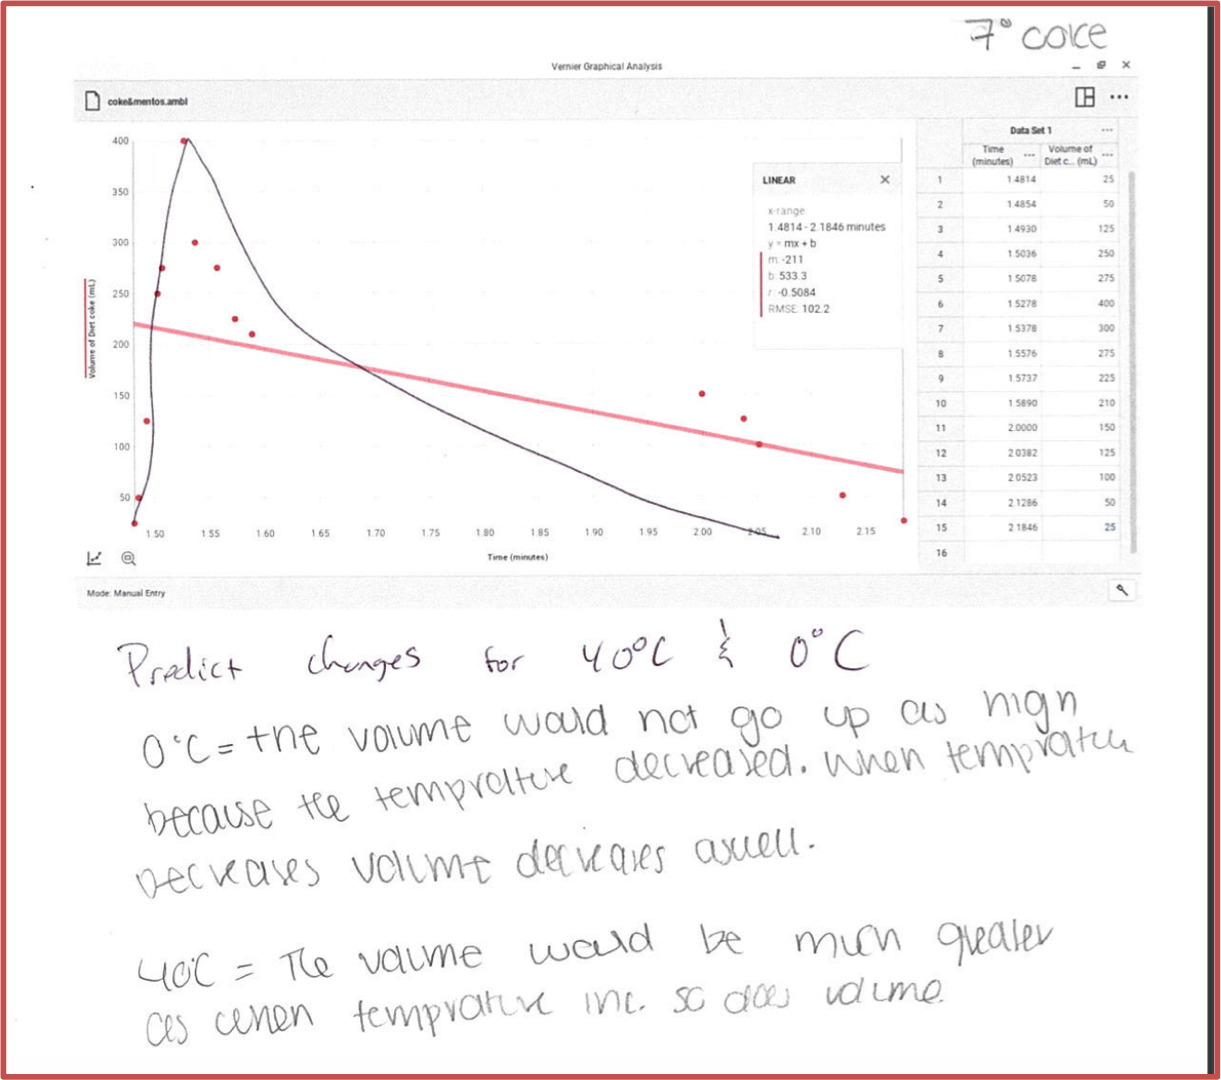 7° coke
Vernier Graphical Analysis
coke&mentos.ambl
Data Set 1
Time (minutes) Volume of Diet c... (mL)
1 1.4814 25
2 1.4854 50
3 1.4930 125
4 1.5036 250
5 1.5078 275
6 1.5278 400
7 1.5378 300
8 1.5576 275
9 1.5737 225
10 1.5890 210
11 2.0000 150
12 2.0382 125
13 2.0523 100
14 2.1286 50
15 2.1846 25
16
LINEAR
x-range:
1.4814 - 2.1846 minutes
y = mx + b
m: -211
b: 533.3
r: -0.5084
RMSE: 102.2
Volume of Diet coke (mL)
400
350
300
250
200
150
100
50
1.50 1.55 1.60 1.65 1.70 1.75 1.80 1.85 1.90 1.95 2.00 2.05 2.10 2.15
Time (minutes)
Mode: Manual Entry
Predict changes for 40°C & 0°C
0°C = the volume would not go up as high
because the tempratture decreased. When temprature
Decreases volume decreases aswell.
40°C = The volume would be much greater
as when temprature inc. so does volume.